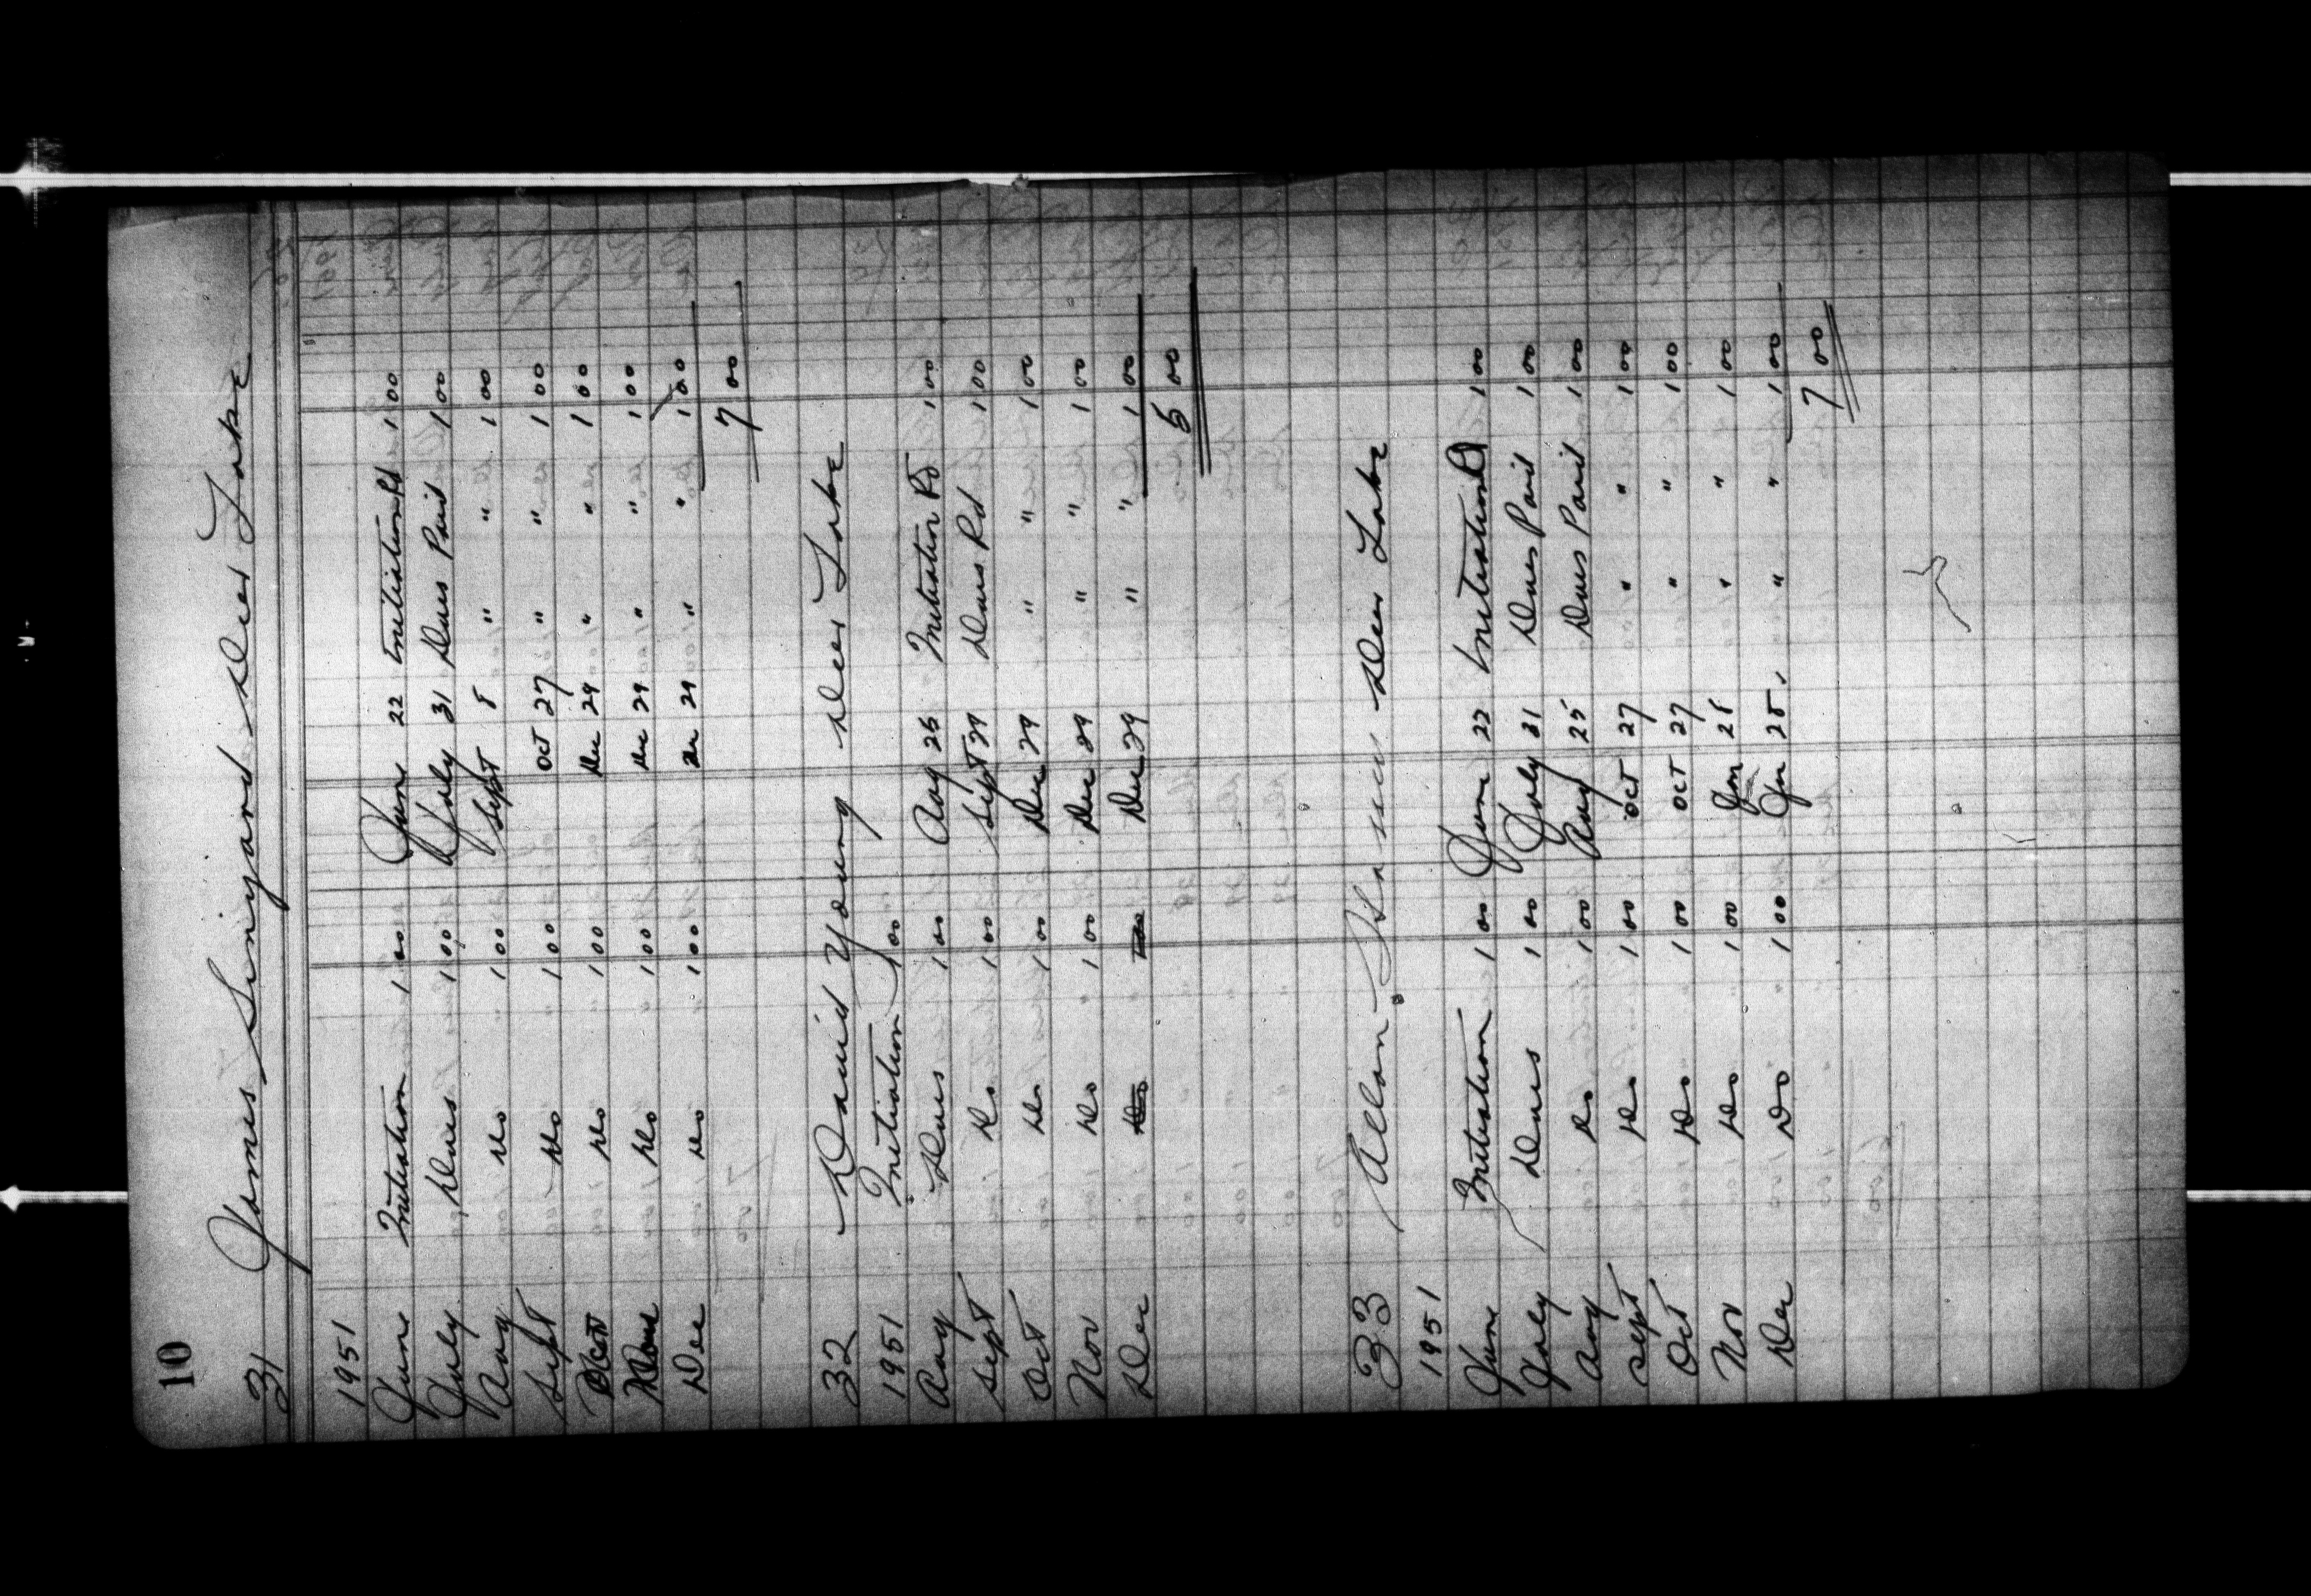 10
31 James Sinyard Deer Lake
1951
June Initiation 1 00 June 22 Initiation Pd 1 00
July Dues 1 00 July 31 Dues Paid 1 00
Aug Do 1 00 Sept 8 " " 1 00
Sept Do 1 00 Oct 27 " " 1 00
Oct Do 1 00 Dec 29 " " 1 00
Nov Do 1 00 Dec 29 " " 1 00
Dec Do 1 00 Dec 29 " " 1 00
7 00
32 David Young Deer Lake
1951 Initiation 1 00
Aug Dues 1 00 Aug 25 Initiation Pd 1 00
Sept Do 1 00 Sept 29 Dues Pd 1 00
Oct Do 1 00 Dec 29 " " 1 00
Nov Do 1 00 Dec 29 " " 1 00
Dec Do 1 00 Dec 29 " " 1 00
5 00
33 Allan Deer Lake
1951
June Initiation 1 00 June 22 Initiation Pd 1 00
July Dues 1 00 July 31 Dues Paid 1 00
Aug Do 1 00 Aug 25 Dues Paid 1 00
Sept Do 1 00 Oct 27 " " 1 00
Oct Do 1 00 Oct 27 " " 1 00
Nov Do 1 00 Jan 25 " " 1 00
Dec Do 1 00 Jan 25 " " 1 00
7 00